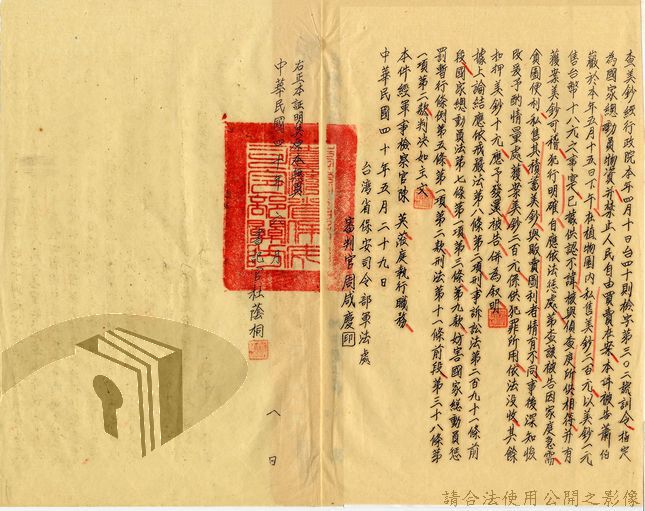 查美鈔經行政院本年四月十日台四十則檢字第三〇二號訓令指定
為國家總動員物資并禁止人民自由買賣在案本件被告蕭伯
嚴於本年五月十五日下午在植物園內私售美鈔二百元以美鈔一元
售台幣十八元之事實已據供認不諱核與偵查庭所供相符并有
獲案美鈔可稽犯行明確自應依法懲處第查該被告因家庭急需
貪圖便利私售其積蓄美鈔與販賣圖利者情有不同事後深知悛
改爰予酌情量處獲案美鈔二百元係供犯罪所用依法沒收其餘
扣押美鈔十元應予發還被告併為敘明
據上論結應依戒嚴法第八條第二項刑事訴訟法第二百九十一條前
段國家總動員法第七條第一項第三條第九款妨害國家總動員懲
罰暫行條例第五條第一項第二款刑法第十一條前段第三十八條第
一項第二款判決如主文
本件經軍事檢察官陳英蒞庭執行職務
中華民國四十年五月二十九日
台灣省保安司令部軍法處
審判官周咸慶印
右正本証明與原本無異
中華民國四十年六月八日
書記官杜蔭桐
請合法使用公開之影像